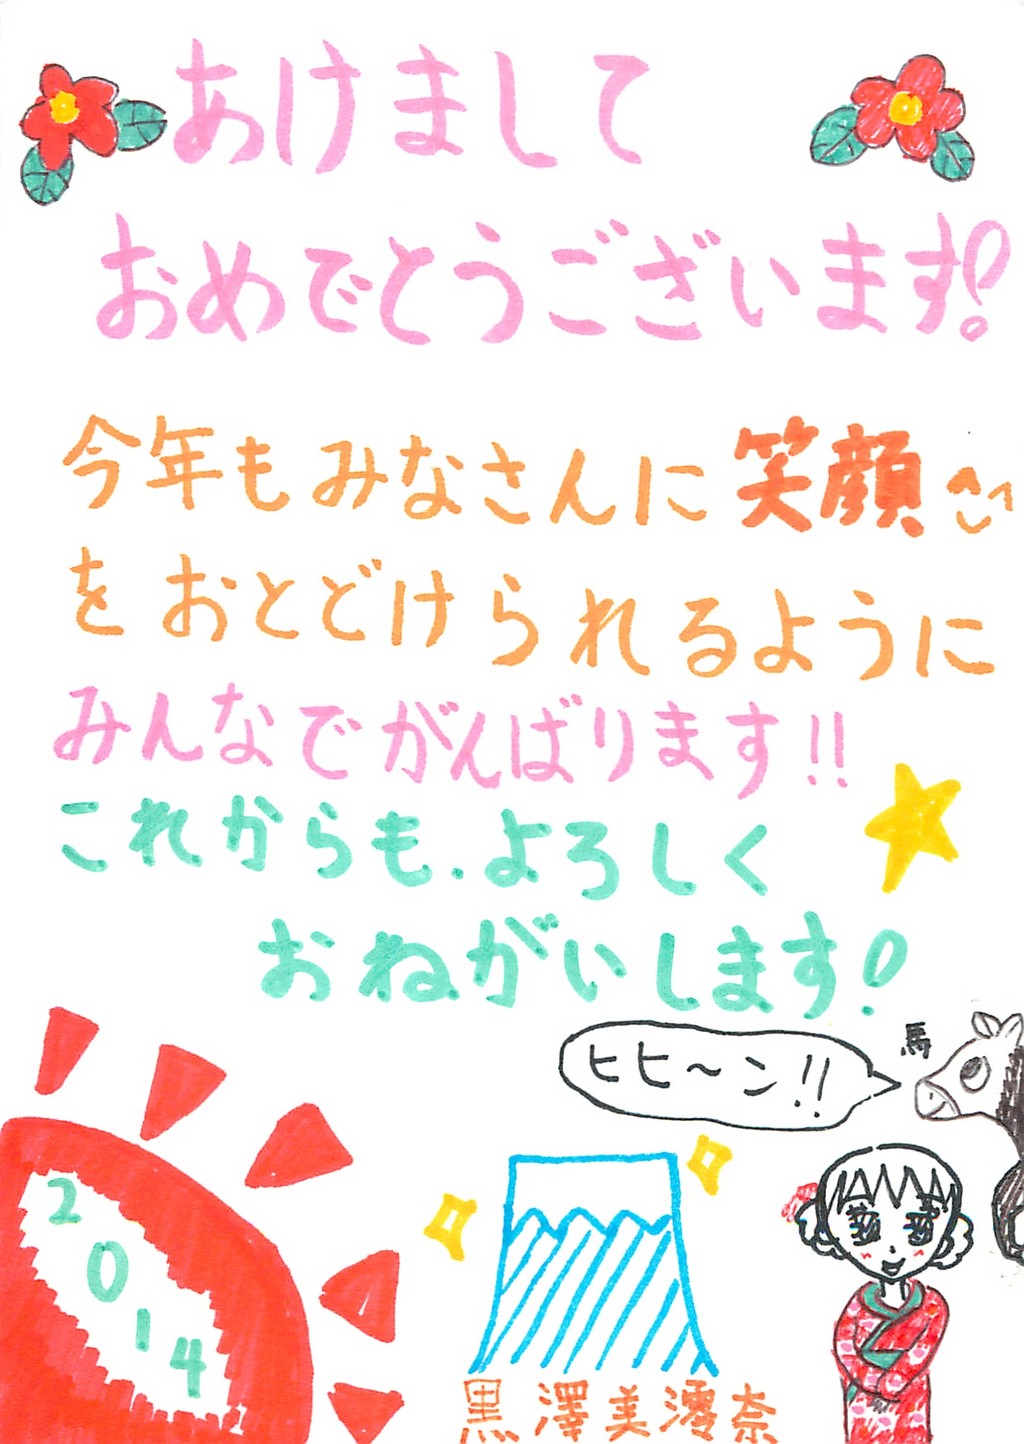 あけまして
おめでとうございます!
今年もみなさんに笑顔
をおとどけられるように
みんなでがんばります!!
これからも.よろしく
おねがいします!
馬
ヒヒ〜ン!!
2014
黒澤美澪奈